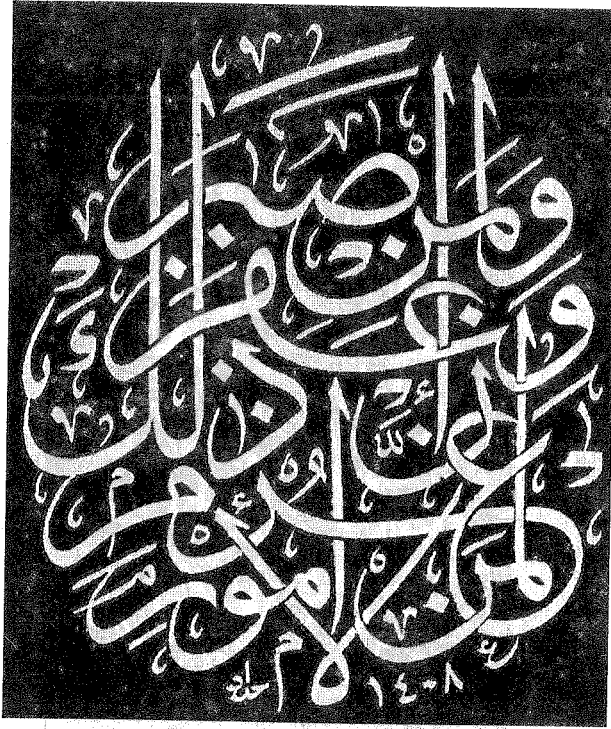 وَلَمَن صَبَرَ
وَغَفَرَ
إِنَّ ذَٰلِكَ
لَمِنْ عَزْمِ
الْأُمُورِ
١٤٠٨